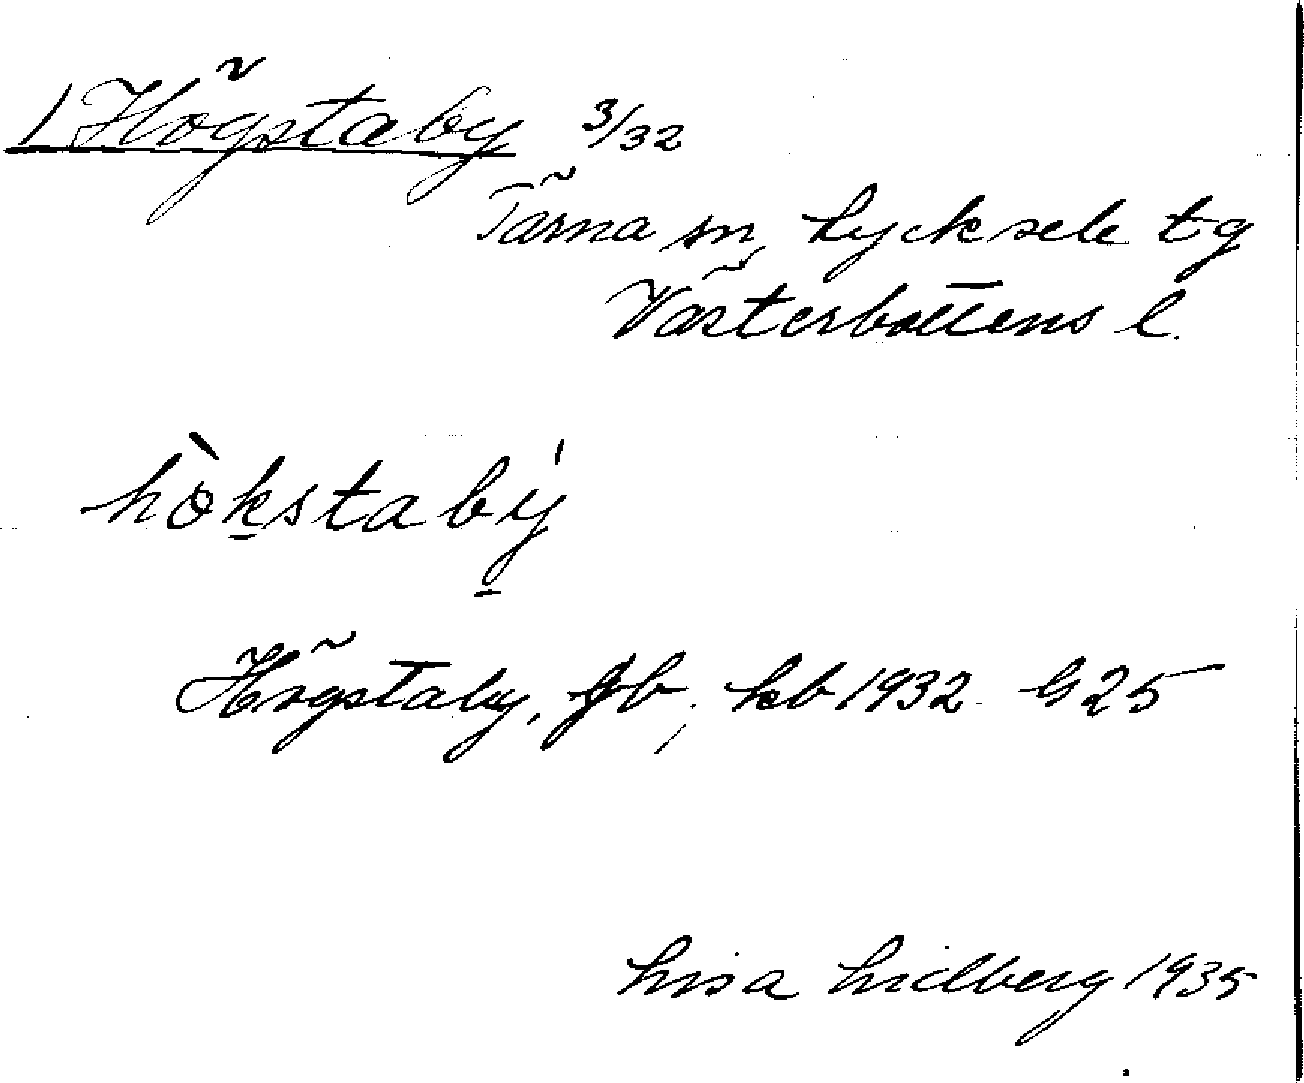 1 Högstaby 3/32
Tärna sn, Lycksele tg
Västerbottens l.
hòkstabý
Högstaby, gb, kb 1932 G 25
Lisa Lidberg 1935